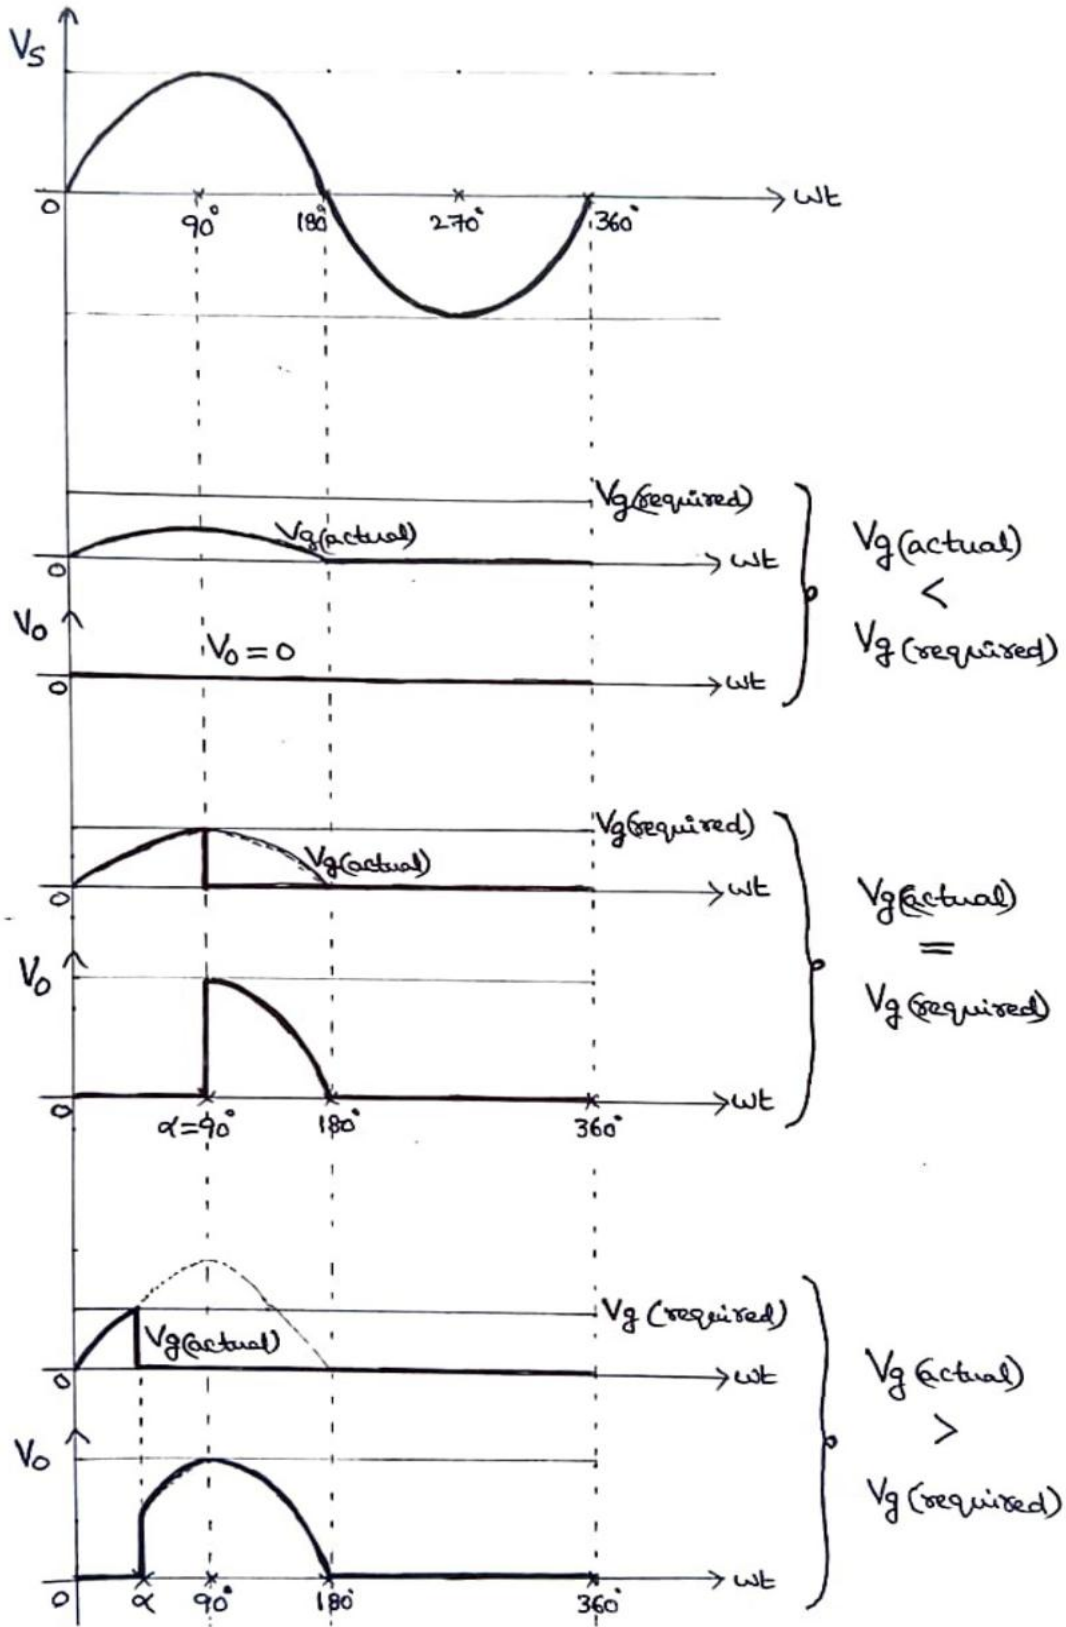 Vs
0 90° 180° 270° 360° ωt
Vg(required)
Vg(actual)
0 ωt
Vg(actual)
<
Vg(required)
Vo
Vo = 0
0 ωt
Vg(required)
Vg(actual)
0 ωt
Vg(actual)
=
Vg(required)
Vo
0 α=90° 180° 360° ωt
Vg(required)
Vg(actual)
0 ωt
Vg(actual)
>
Vg(required)
Vo
0 α 90° 180° 360° ωt